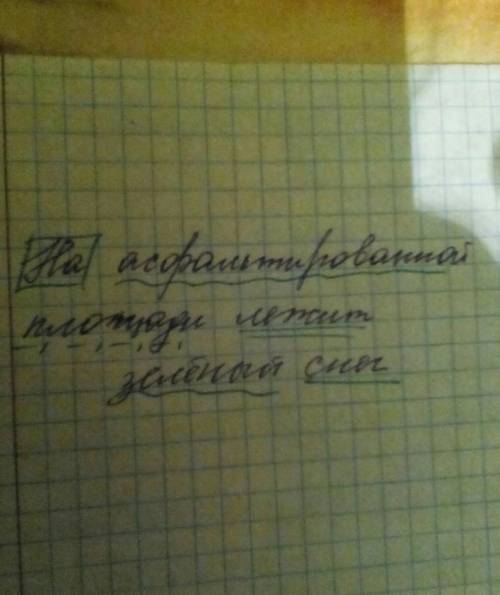 На асфальтированной
площади лежит
зелёный снег